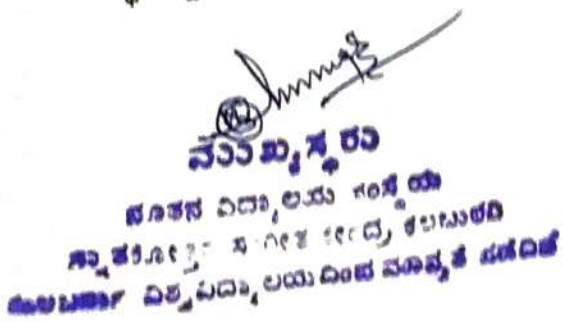 ಮುಖ್ಯಸ್ಥರು
ನೂತನ ವಿದ್ಯಾಲಯ ಸಂಸ್ಥೆಯ
ಸ್ನಾತಕೋತ್ತರ ಸಂಗೀತ ಕೇಂದ್ರ, ಕಲಬುರಗಿ
ಗುಲಬರ್ಗಾ ವಿಶ್ವವಿದ್ಯಾಲಯದಿಂದ ಮಾನ್ಯತೆ ಪಡೆದಿದೆ